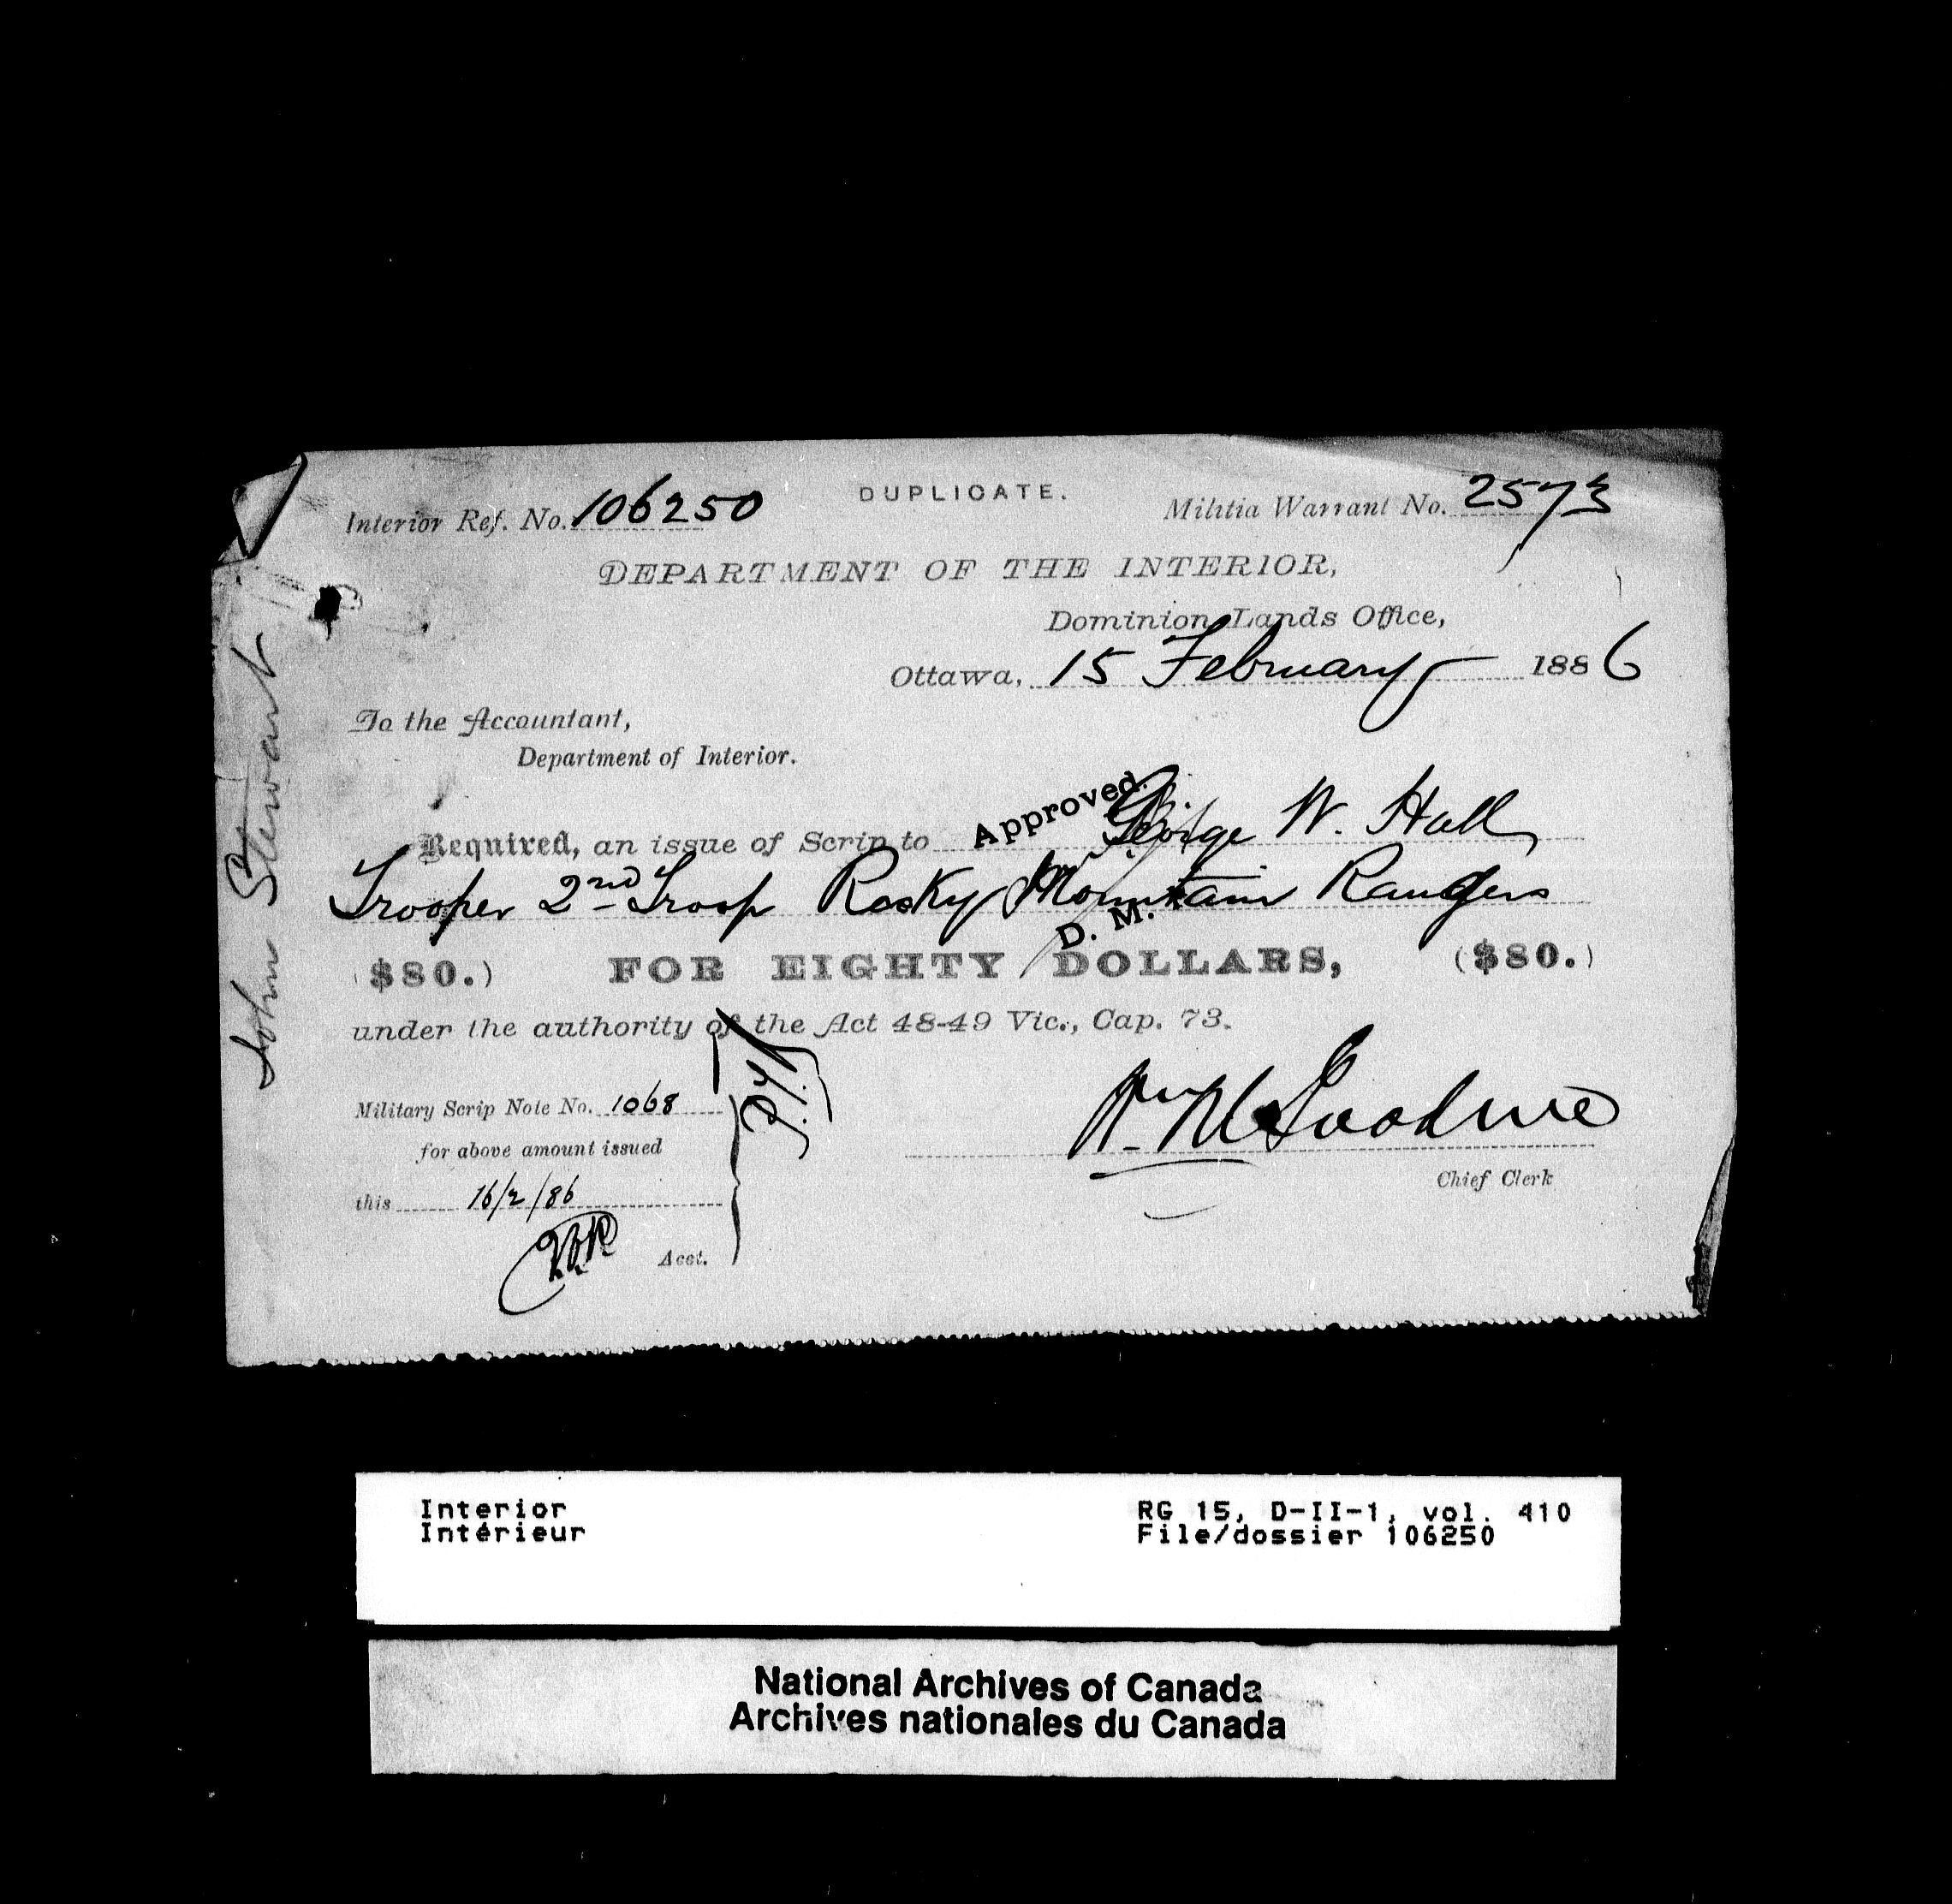 DUPLICATE.
Interior Ref. No. 106250
Militia Warrant No. 2573
DEPARTMENT OF THE INTERIOR,
Dominion Lands Office,
Ottawa, 15 February 1886
To the Accountant,
Department of Interior.
Approved.
Required, an issue of Scrip to George W. Hall
Trooper 2nd Troop Rocky Mountain Rangers
D. M.
($80.) FOR EIGHTY DOLLARS, ($80.)
under the authority of the Act 48-49 Vic., Cap. 73.
Military Scrip Note No. 1068
for above amount issued
this 16/2/86
Acct.
Chief Clerk
John Stewart
Interior
Intérieur
RG 15, D-II-1, vol. 410
File/dossier 106250
National Archives of Canada
Archives nationales du Canada